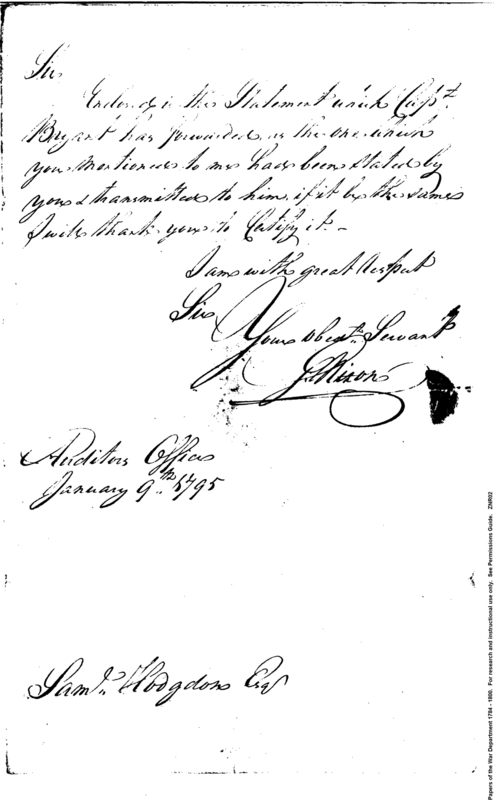 Sir
Enclosed is the Statement which Capt.
Bryant has forwarded as the one which
you mentioned to me had been stated by
you & transmitted to him, if it be the same
I will thank you to Certify it. –
I am with great respect
Sir
Your Obedt. Servant
Nixon
Auditors Office
January 9th. 1795
Saml. Hodgdon Esqr
Papers of the War Department 1784 - 1800. For research and instructional use only. See Permissions Guide. ZNR02